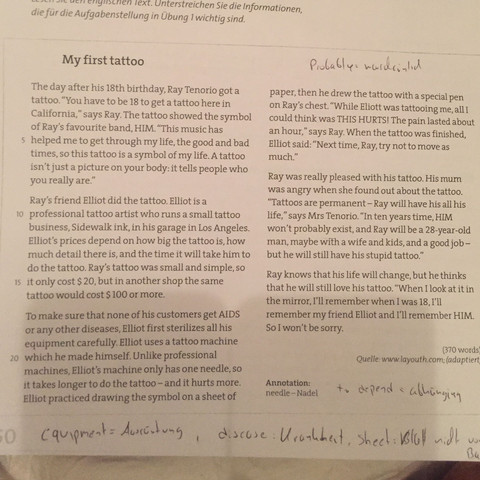 Lesen Sie den englischen Text. Unterstreichen Sie die Informationen,
die für die Aufgabenstellung in Übung 1 wichtig sind.
My first tattoo
The day after his 18th birthday, Ray Tenorio got a
tattoo. "You have to be 18 to get a tattoo here in
California," says Ray. The tattoo showed the symbol
of Ray's favourite band, HIM. "This music has
5 helped me to get through my life, the good and bad
times, so this tattoo is a symbol of my life. A tattoo
isn't just a picture on your body: it tells people who
you really are."
Ray's friend Elliot did the tattoo. Elliot is a
10 professional tattoo artist who runs a small tattoo
business, Sidewalk ink, in his garage in Los Angeles.
Elliot's prices depend on how big the tattoo is, how
much detail there is, and the time it will take him to
do the tattoo. Ray's tattoo was small and simple, so
15 it only cost $20, but in another shop the same
tattoo would cost $100 or more.
To make sure that none of his customers get AIDS
or any other diseases, Elliot first sterilizes all his
equipment carefully. Elliot uses a tattoo machine
20 which he made himself. Unlike professional
machines, Elliot's machine only has one needle, so
it takes longer to do the tattoo – and it hurts more.
Elliot practiced drawing the symbol on a sheet of
Probably =
paper, then he drew the tattoo with a special pen
on Ray's chest. "While Eliott was tattooing me, all I
could think was THIS HURTS! The pain lasted about
an hour," says Ray. When the tattoo was finished,
Elliot said: "Next time, Ray, try not to move as
much."
Ray was really pleased with his tattoo. His mum
was angry when she found out about the tattoo.
"Tattoos are permanent – Ray will have his all his
life," says Mrs Tenorio. "In ten years time, HIM
won't probably exist, and Ray will be a 28-year-old
man, maybe with a wife and kids, and a good job –
but he will still have his stupid tattoo."
Ray knows that his life will change, but he thinks
that he will still love his tattoo. "When I look at it in
the mirror, I'll remember when I was 18, I'll
remember my friend Elliot and I'll remember HIM.
So I won't be sorry.
(370 words)
Quelle: www.layouth.com, (adaptiert)
Annotation:
needle – Nadel
to depend = abhängig
Equipment = Ausrüstung, disease: Krankheit, sheet: Blatt nicht